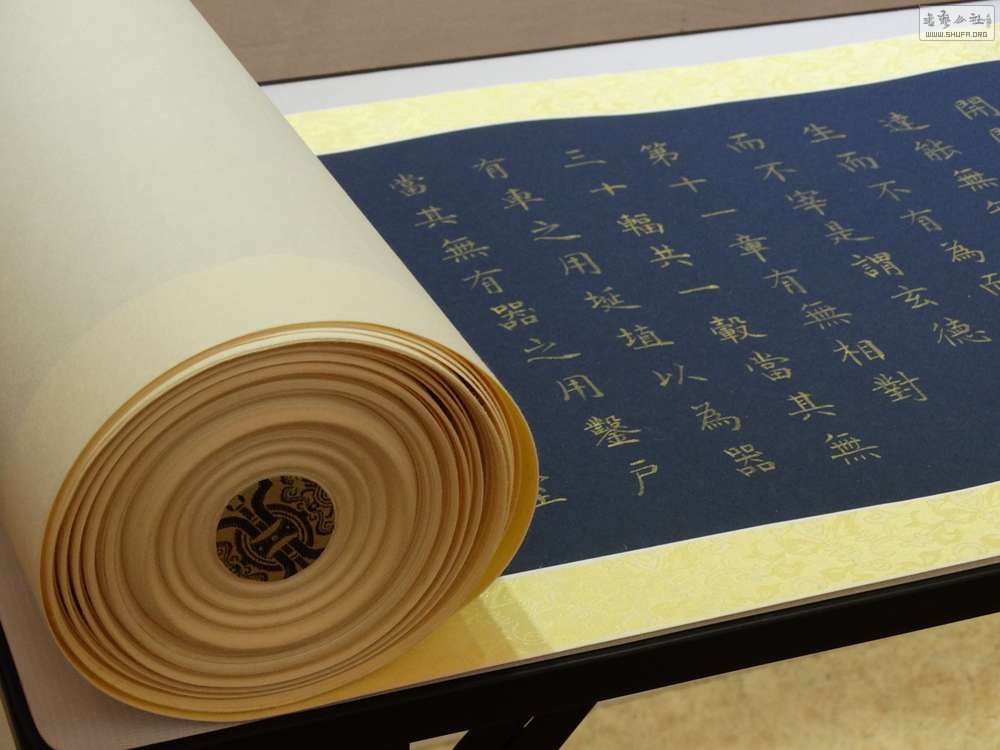 開
達能無
生而不有為而
而不宰是謂玄德
第十一章有無相對
三十輻共一轂當其無
有車之用埏埴以為器
當其無有器之用鑿戶
書藝公社
WWW.SHUFA.ORG